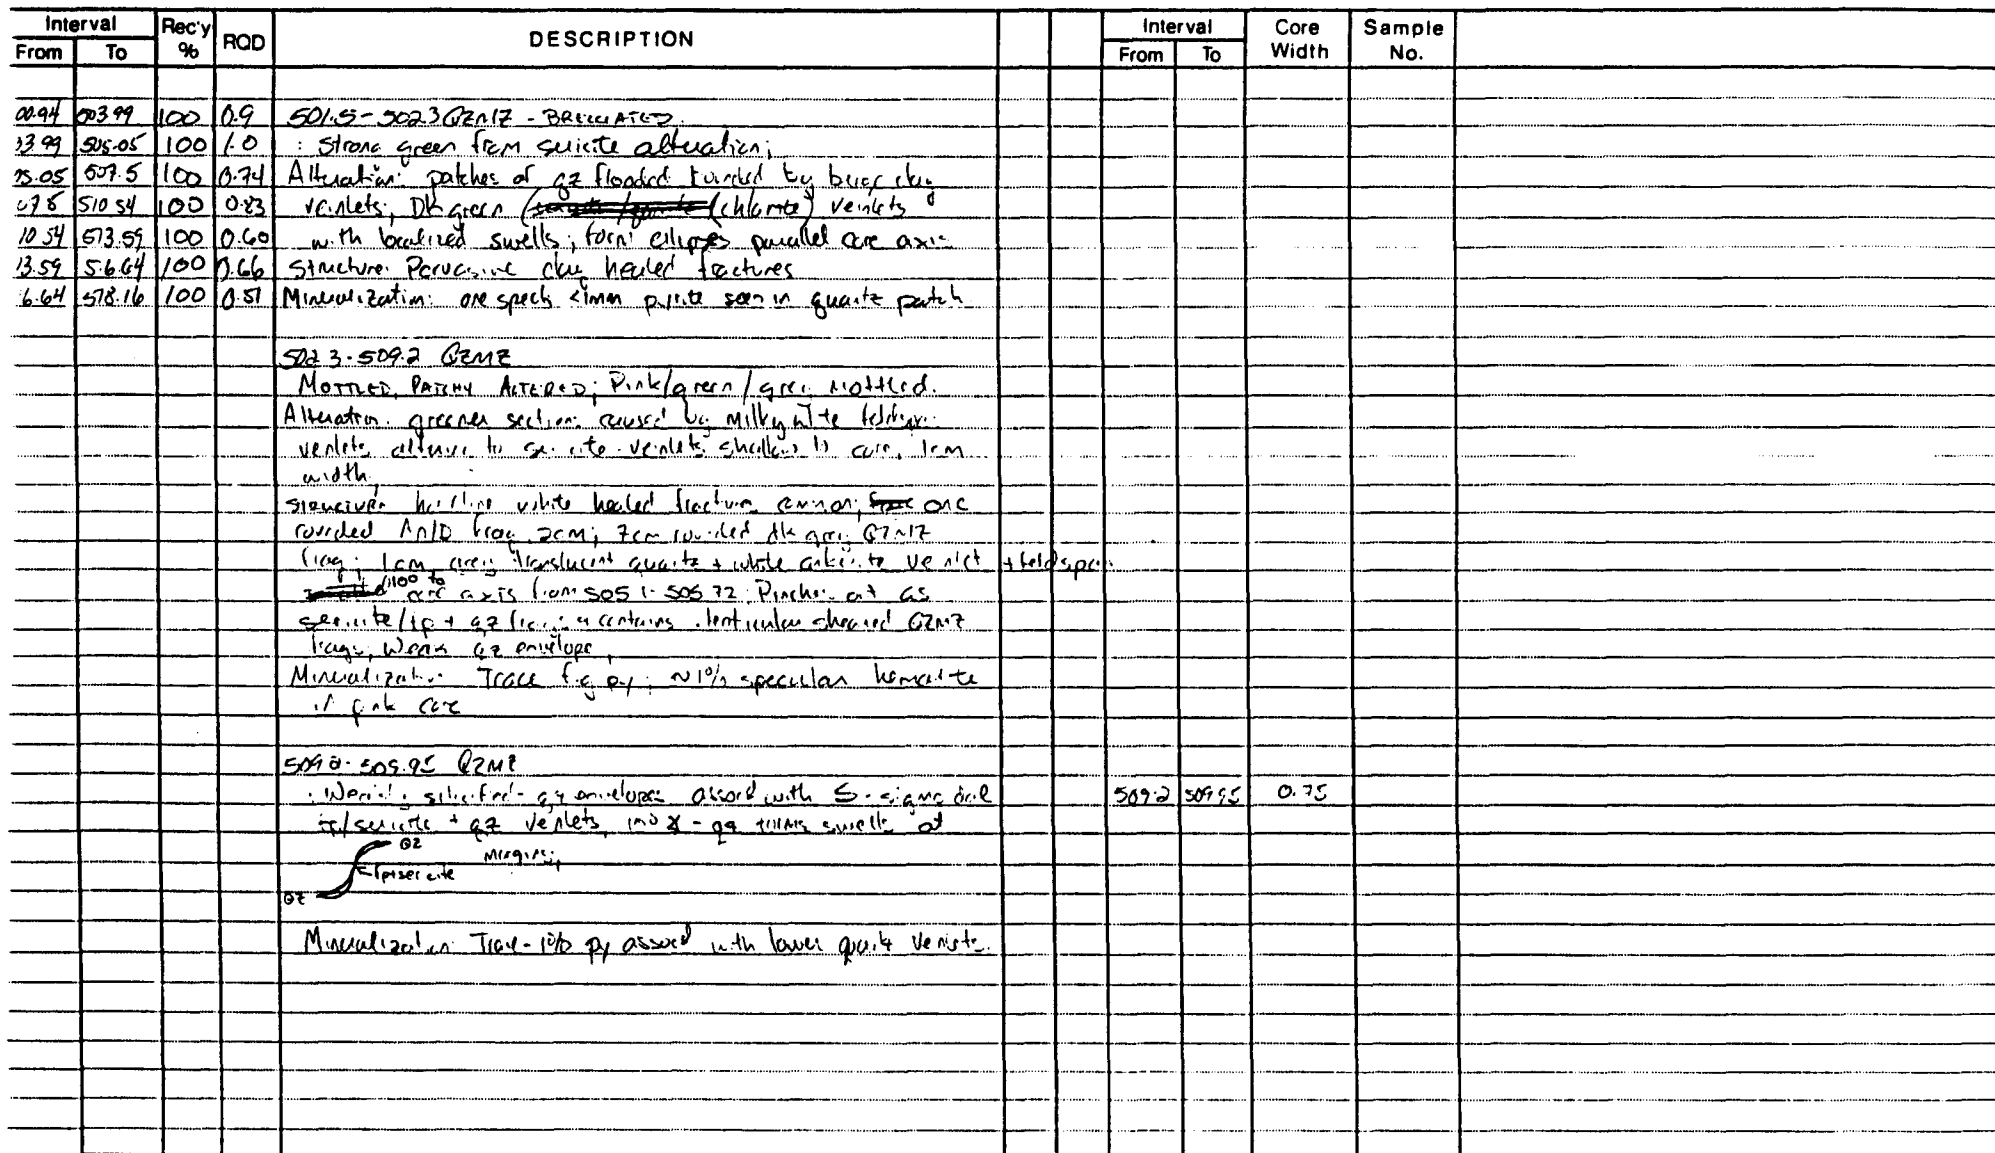 Interval Rec'y % RQD DESCRIPTION Interval Core Width Sample No.
From To From To
00.94 503.99 100 0.9 501.5-502.3 QZMZ - BRECCIATED
03.99 505.05 100 1.0 : Strong green from sericite alteration;
05.05 507.5 100 0.74 Alteration: patches of qz flooded by beige clay
07.5 510.54 100 0.83 veinlets; Dk green (chlorite) veinlets
10.54 513.59 100 0.60 with localized swells; form ellipses parallel core axis
13.59 516.64 100 0.66 Structure: Pervasive clay healed fractures
6.64 518.16 100 0.51 Mineralization: one speck <1mm pyrite seen in quartz patch
502.3-509.2 QZMZ
MOTTLED, PATCHY ALTERED; Pink/green/grey mottled.
Alteration: greener sections caused by milky white
veinlets to sericite veinlets 1cm
width;
Structure: hairline white healed fractures common; one
rounded frag 2cm; 7cm rounded dk grey QZMZ
frag; 1cm grey translucent quartz + white ankerite veinlet + feldspar
to core axis from 505.1-505.72; Pinches out as
sericite/ + qz contains lenticular sheared QZMZ
frags; Weak qz envelope;
Mineralization: Trace f.g py; ~1% specular hematite
in pink core
509.2-509.95 QZMZ
: Weakly silicified - qz envelopes assoc'd with S-sigmoidal 509.2 509.95 0.75
/sericite + qz veinlets, - qz swells at
QZ margins;
sericite
QZ
Mineralization: Trace-1% py assoc'd with lower quartz veinlets.